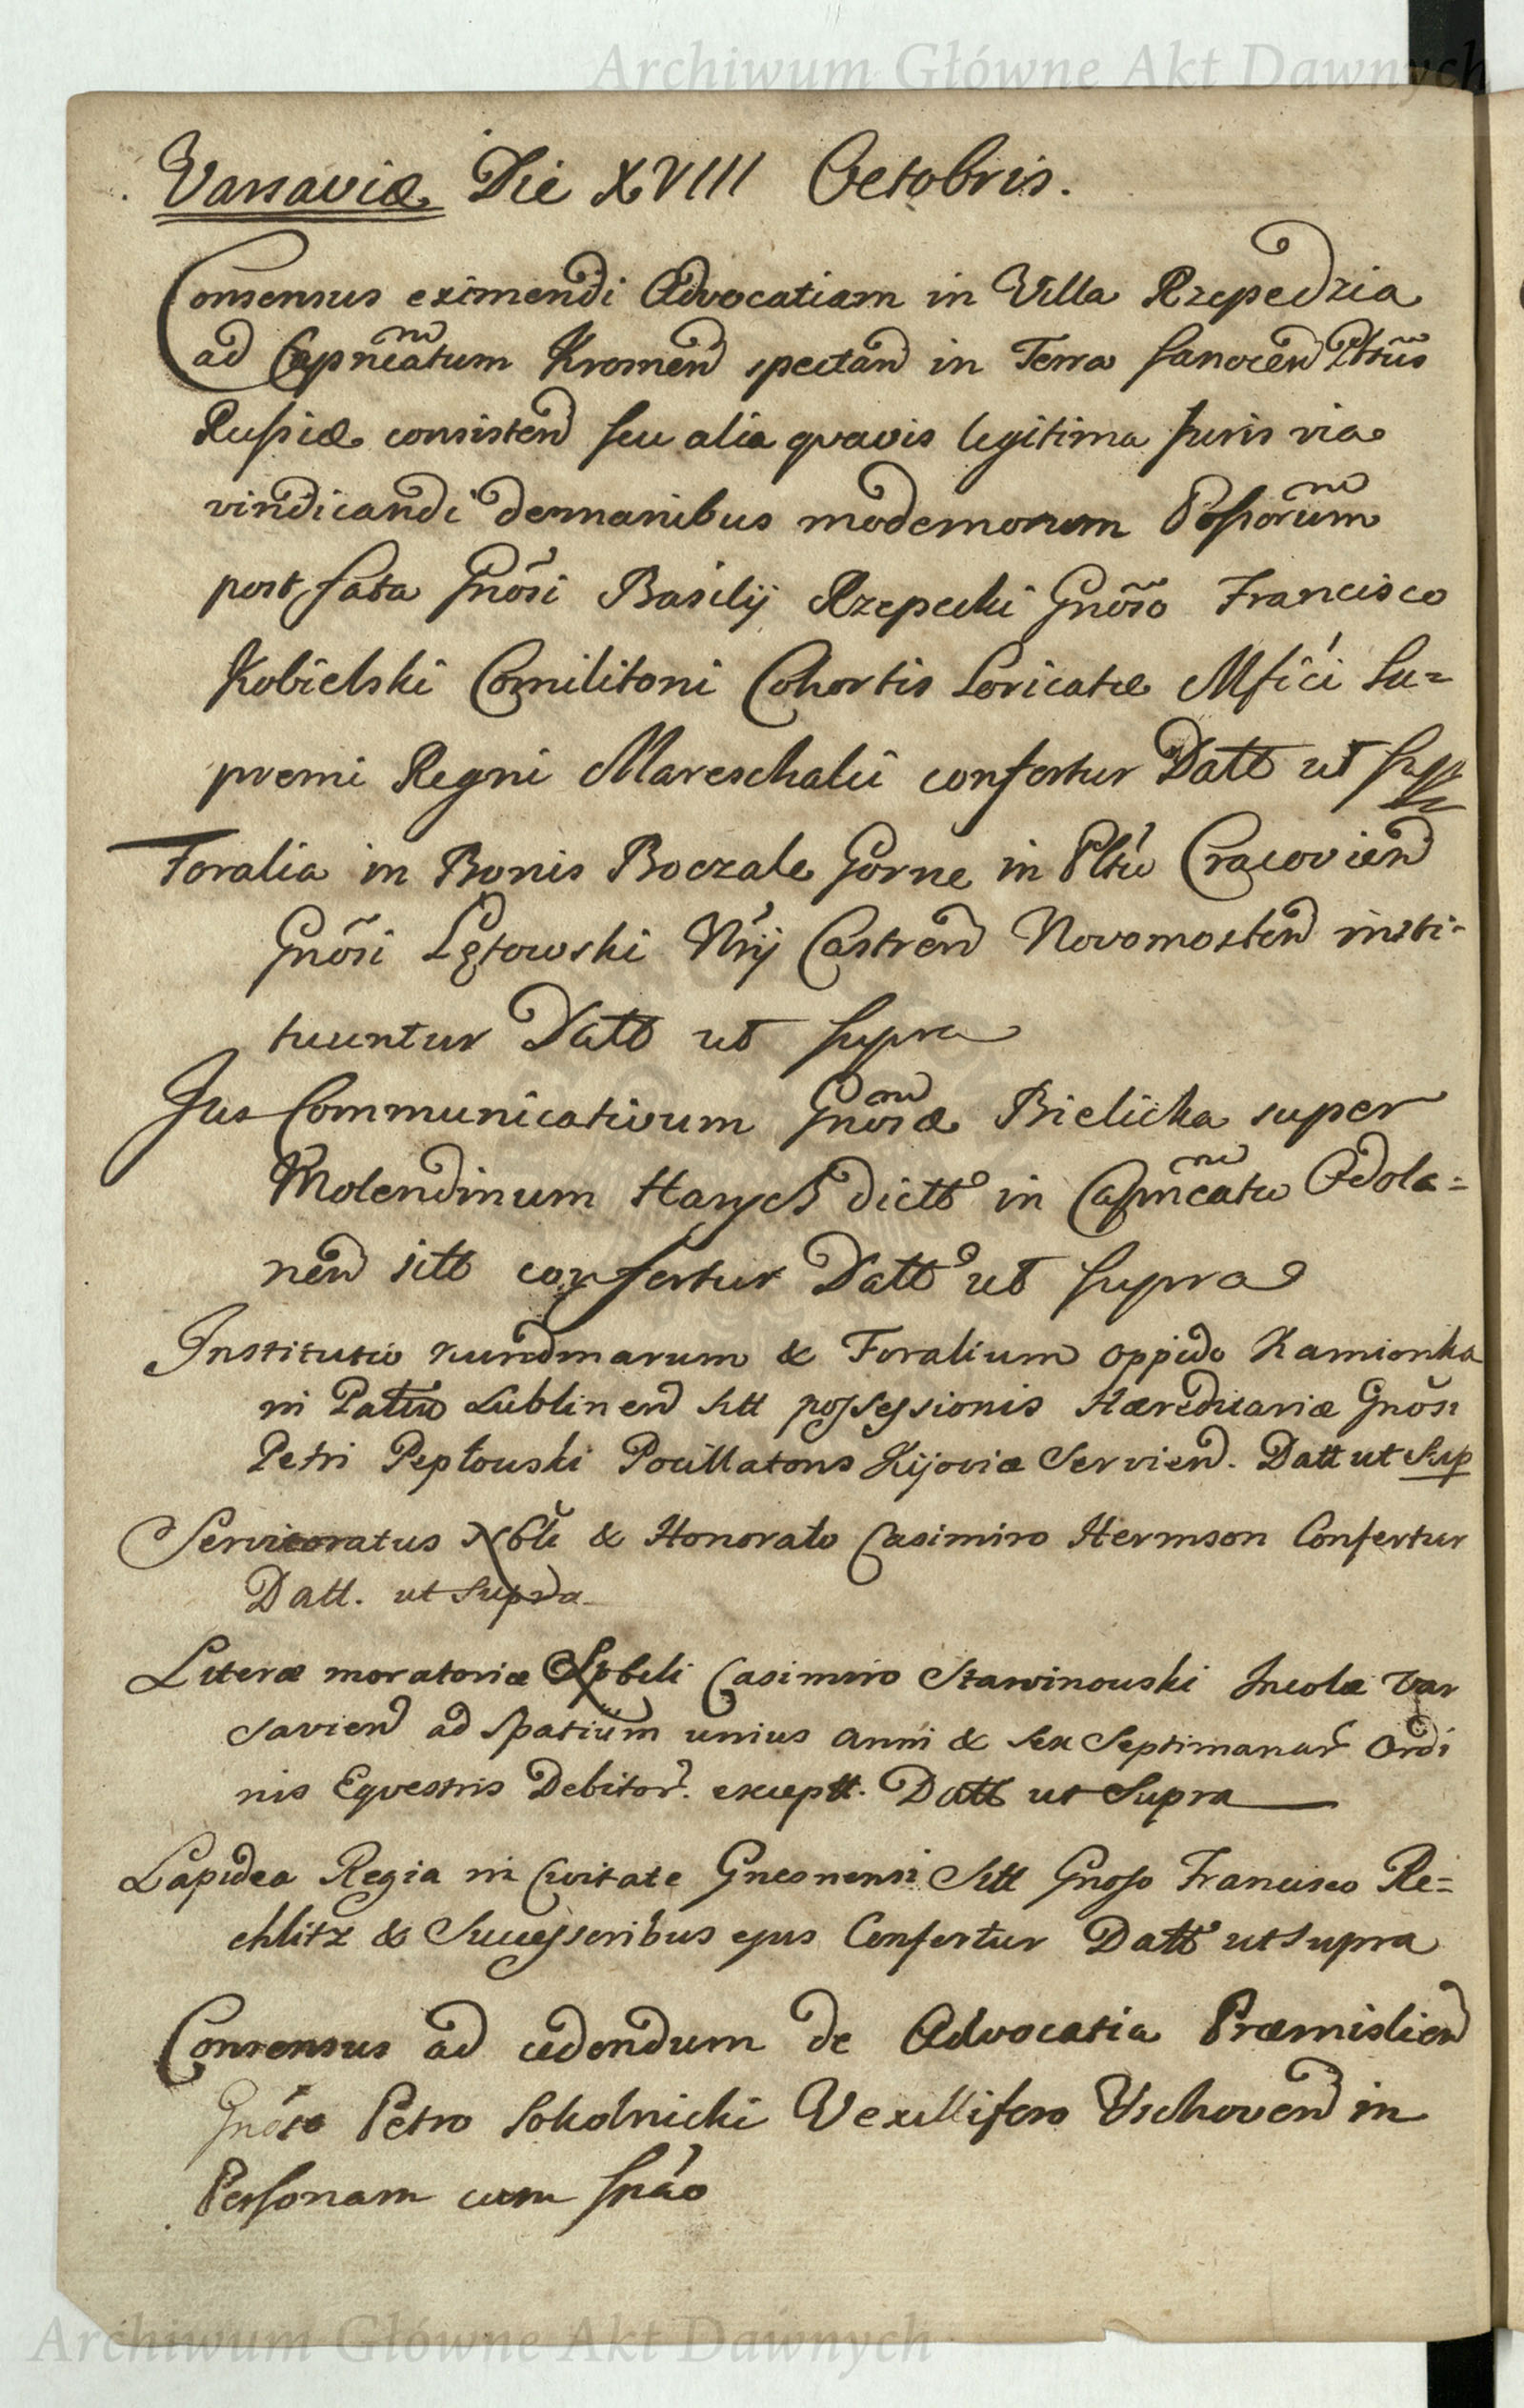 Archiwum Główne Akt Dawnych
Varsaviæ Die XVIII Octobris.
Consensus eximendi Advocatiam in Villa Rzepedzia
ad Capn̄eatum Kromen̄ spectan̄ in Terra Sanocen̄ Pltūs
Russiæ consisten̄ seu alia qvavis legitima Juris via
vindicandi demanibus modernorum Possorum
post fata Gnōsi Basilij Rzepecki Gnōso Francisco
Kobielski Comilitoni Cohortis Loricatæ Mfici Su=
premi Regni Mareschalii confertur Datt ut Supr
Foralia in Bonis Boczale Gorne in Pltū Cracovien̄
Gnōsi Lętowski Nrij Castren̄ Novomosten̄ insti-
tuuntur Datt ut supra
Jus Communicativum Gnōsæ Bielicka super
Molendinum Harych dictt in Capn̄eatu Adola=
nen̄ sitt confertur Datt ut supra
Institutio nundinarum & Foralium oppido Kamionka
in Patũ Lublinen̄ sitt possessionis Hæreditariæ Gnōsi
Petri Peptouski Pocillatoris Kijoviæ Servien̄. Datt ut Sup
Servitoratus Nbli & Honorato Casimiro Hermson Confertur
Datt. ut Supra
Literæ moratoriæ Casimiro Stawinouski Incolæ Var
savien̄ ad spatium unius anni & sex Septimanar̄ Ordi
nis Eqvestris Debitor̄. exceptt. Datt ut Supra
Lapidea Regia in Civitate Gnesnensi Sitt Gnoso Francisco Re=
chlitz & Successoribus ejus Confertur Datt ut supra
Consensus ad cedendum de Advocatia Præmislien̄
Gnōso Petro Sokolnicki Vexillifero Vschoven̄ in
Personam cum Snão
Archiwum Główne Akt Dawnych